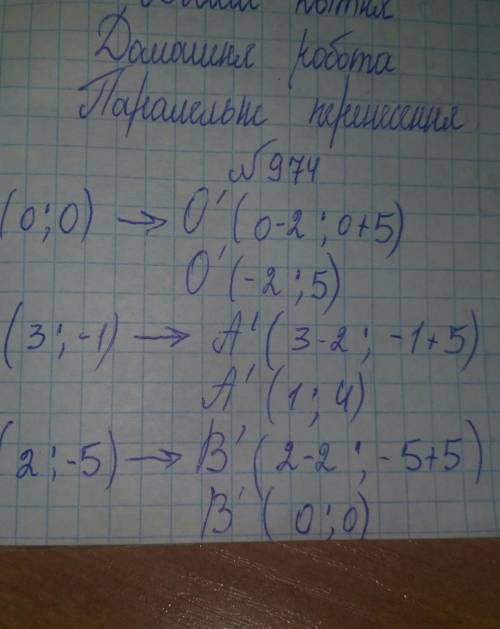 Домашня робота
Паралельне перенесення
№974
(0;0) → O' (0-2;0+5)
O' (-2;5)
(3;-1) → A' (3-2; -1+5)
A' (1;4)
(2;-5) → B' (2-2; -5+5)
B' (0;0)